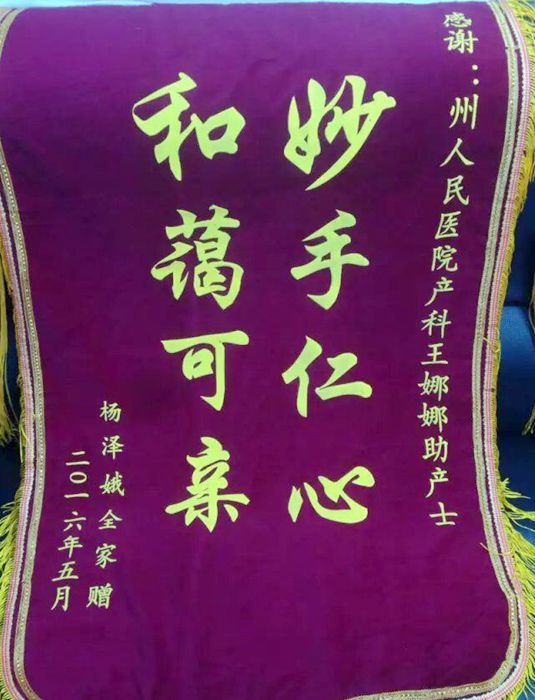 感谢：州人民医院产科王娜娜助产士
妙手仁心
和蔼可亲
杨泽娥全家赠
二〇一六年五月